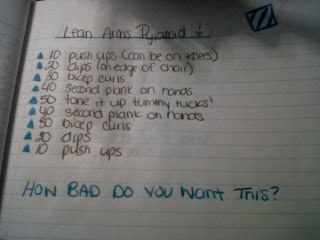 Lean Arms Pyramid
10 push ups (can be on knees)
20 dips (on edge of chair)
30 bicep curls
40 second plank on hands
50 tone it up tummy tucks!
40 second plank on hands
30 bicep curls
20 dips
10 push ups
HOW BAD DO YOU WANT THIS?